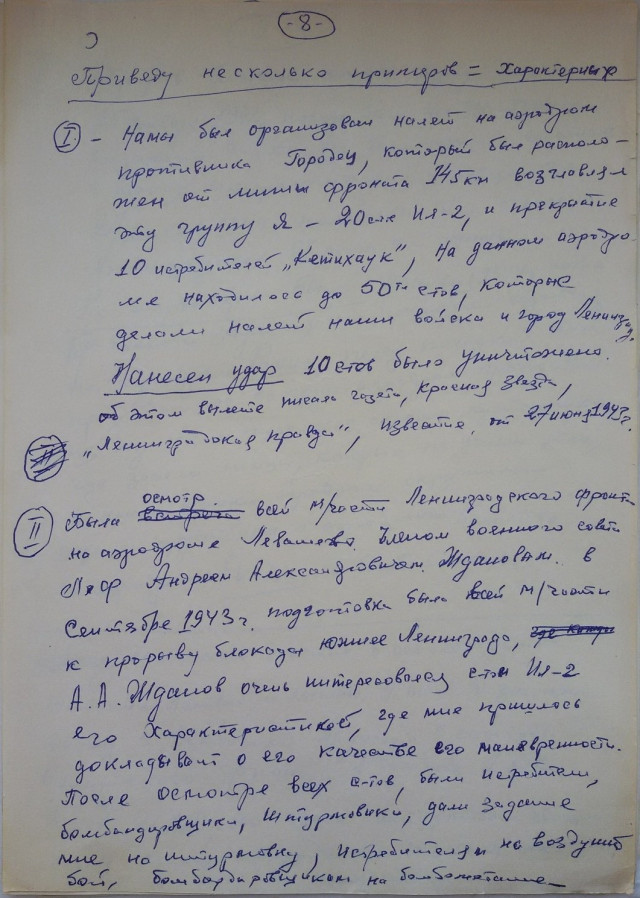 - 8 -
Приведу несколько примеров = характерных
I - Нами был организован налет на аэродром
противника Городец, который был располо-
жен от линии фронта 145км возглавлял
эту группу я - 20 стк Ил-2, и прекрытие
10 истребителей „Китихаук", На данном аэродро
ме находилось до 50ти с-тов, которые
делали налет наши войска и город Ленинград.
Нанесен удар 10 стов было уничтожено.
об этом вылете писала газета, красная звезда,
„Ленинградская правда", известие, от 27 июня 1943г.
осмотр
II Была всей м/части Ленинградского фронта
на аэродроме Левашево. Членом военного совета
Андреем Александровичем Ждановым. в
Сентябре 1943г. подготовка была всей м/части
к прорыву блокады южнее Ленинграда,
А. А. Жданов очень интересовался стом Ил-2
его характеристикой, где мне пришлось
докладывать о его качестве его маневренности.
После осмотре всех с-тов, были истребители,
бомбандировщики, штурмовики, дали задание
мне на штурмовку, истребителям на воздушный
бой, бомбардировщикам на бомбометание